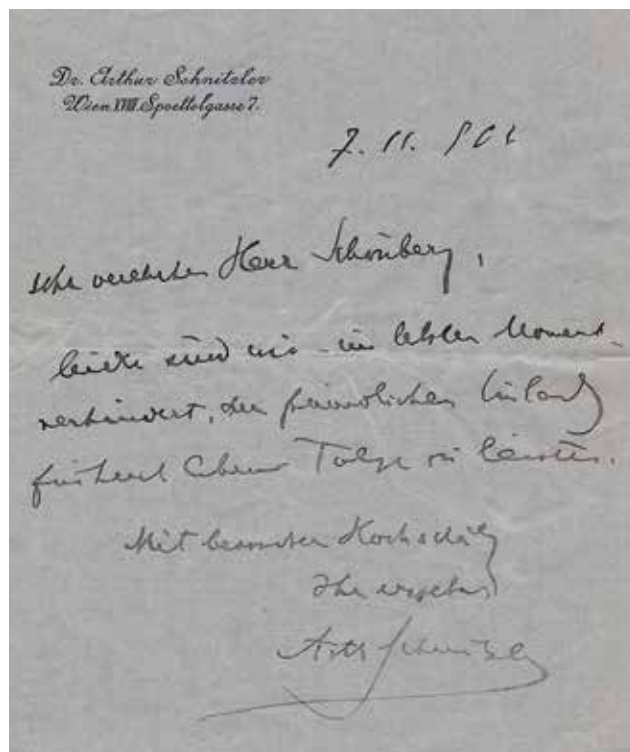 Dr. Arthur Schnitzler
Wien XVIII. Spoettelgasse 7.
7. 11. 908
Sehr verehrter Herr Schönberg,
leider sind wir im letzten Moment
verhindert, der freundlichen Einladg
für heut Abend Folge zu leisten.
Mit besondrer Hochschätzg
Ihr ergebner
Arth Schnitzler